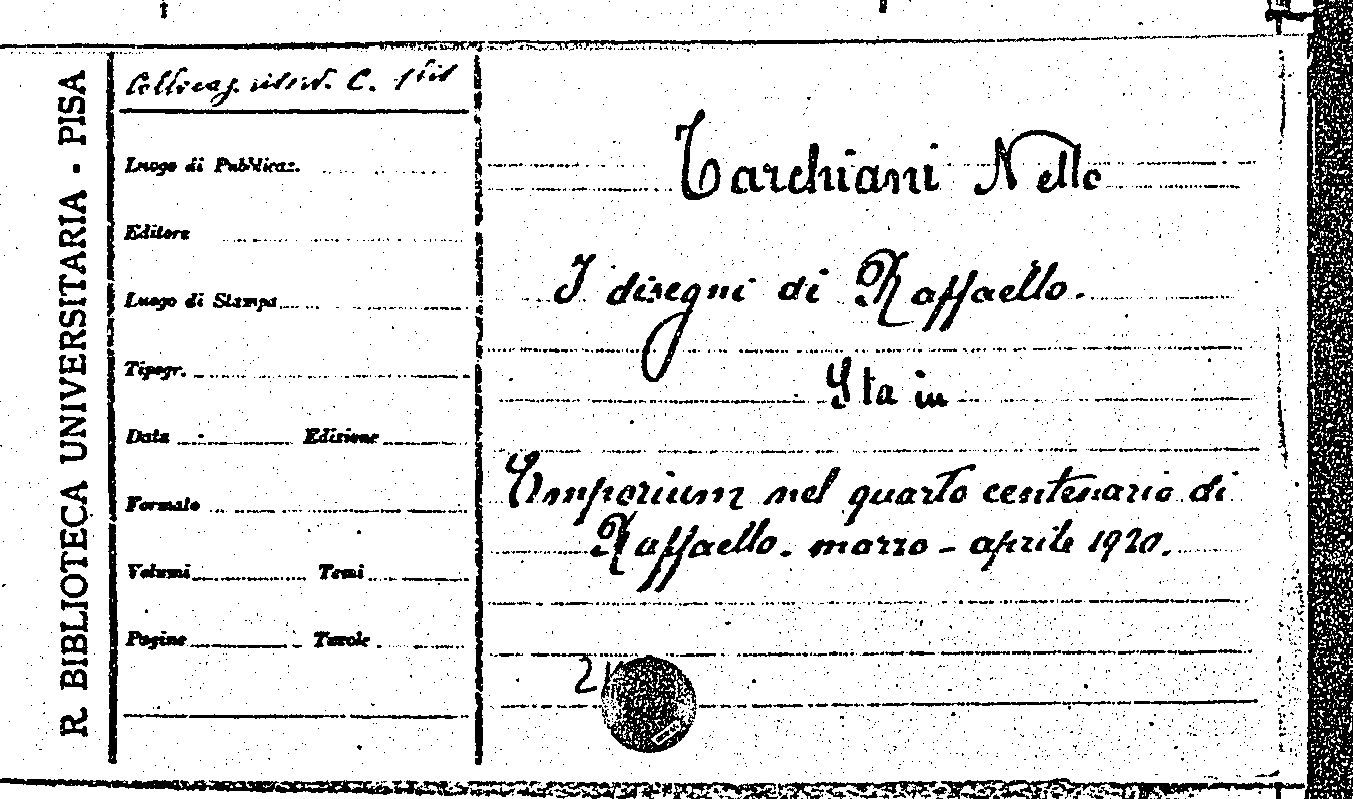 R BIBLIOTECA UNIVERSITARIA - PISA
Collocaz. C.
Luogo di Pubblicaz.
Editore
Luogo di Stampa
Tipogr.
Data Edizione
Formato
Volumi Tomi
Pagine Tavole
Tarchiani Nello
I disegni di Raffaello.
Sta in
Emporium nel quarto centenario di
Raffaello. marzo - aprile 1920.